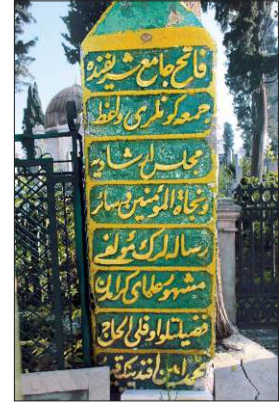 فاتح جامع شريفنده
جمعه كونلرى وعظ
مجلس ارشاديه
ونجاة المؤمنين وسائر
رساله لرك مؤلفى
مشهور علماى كرامدن
فضيلتلو اوفلى الحاج
محمد امين افندينك قبرى